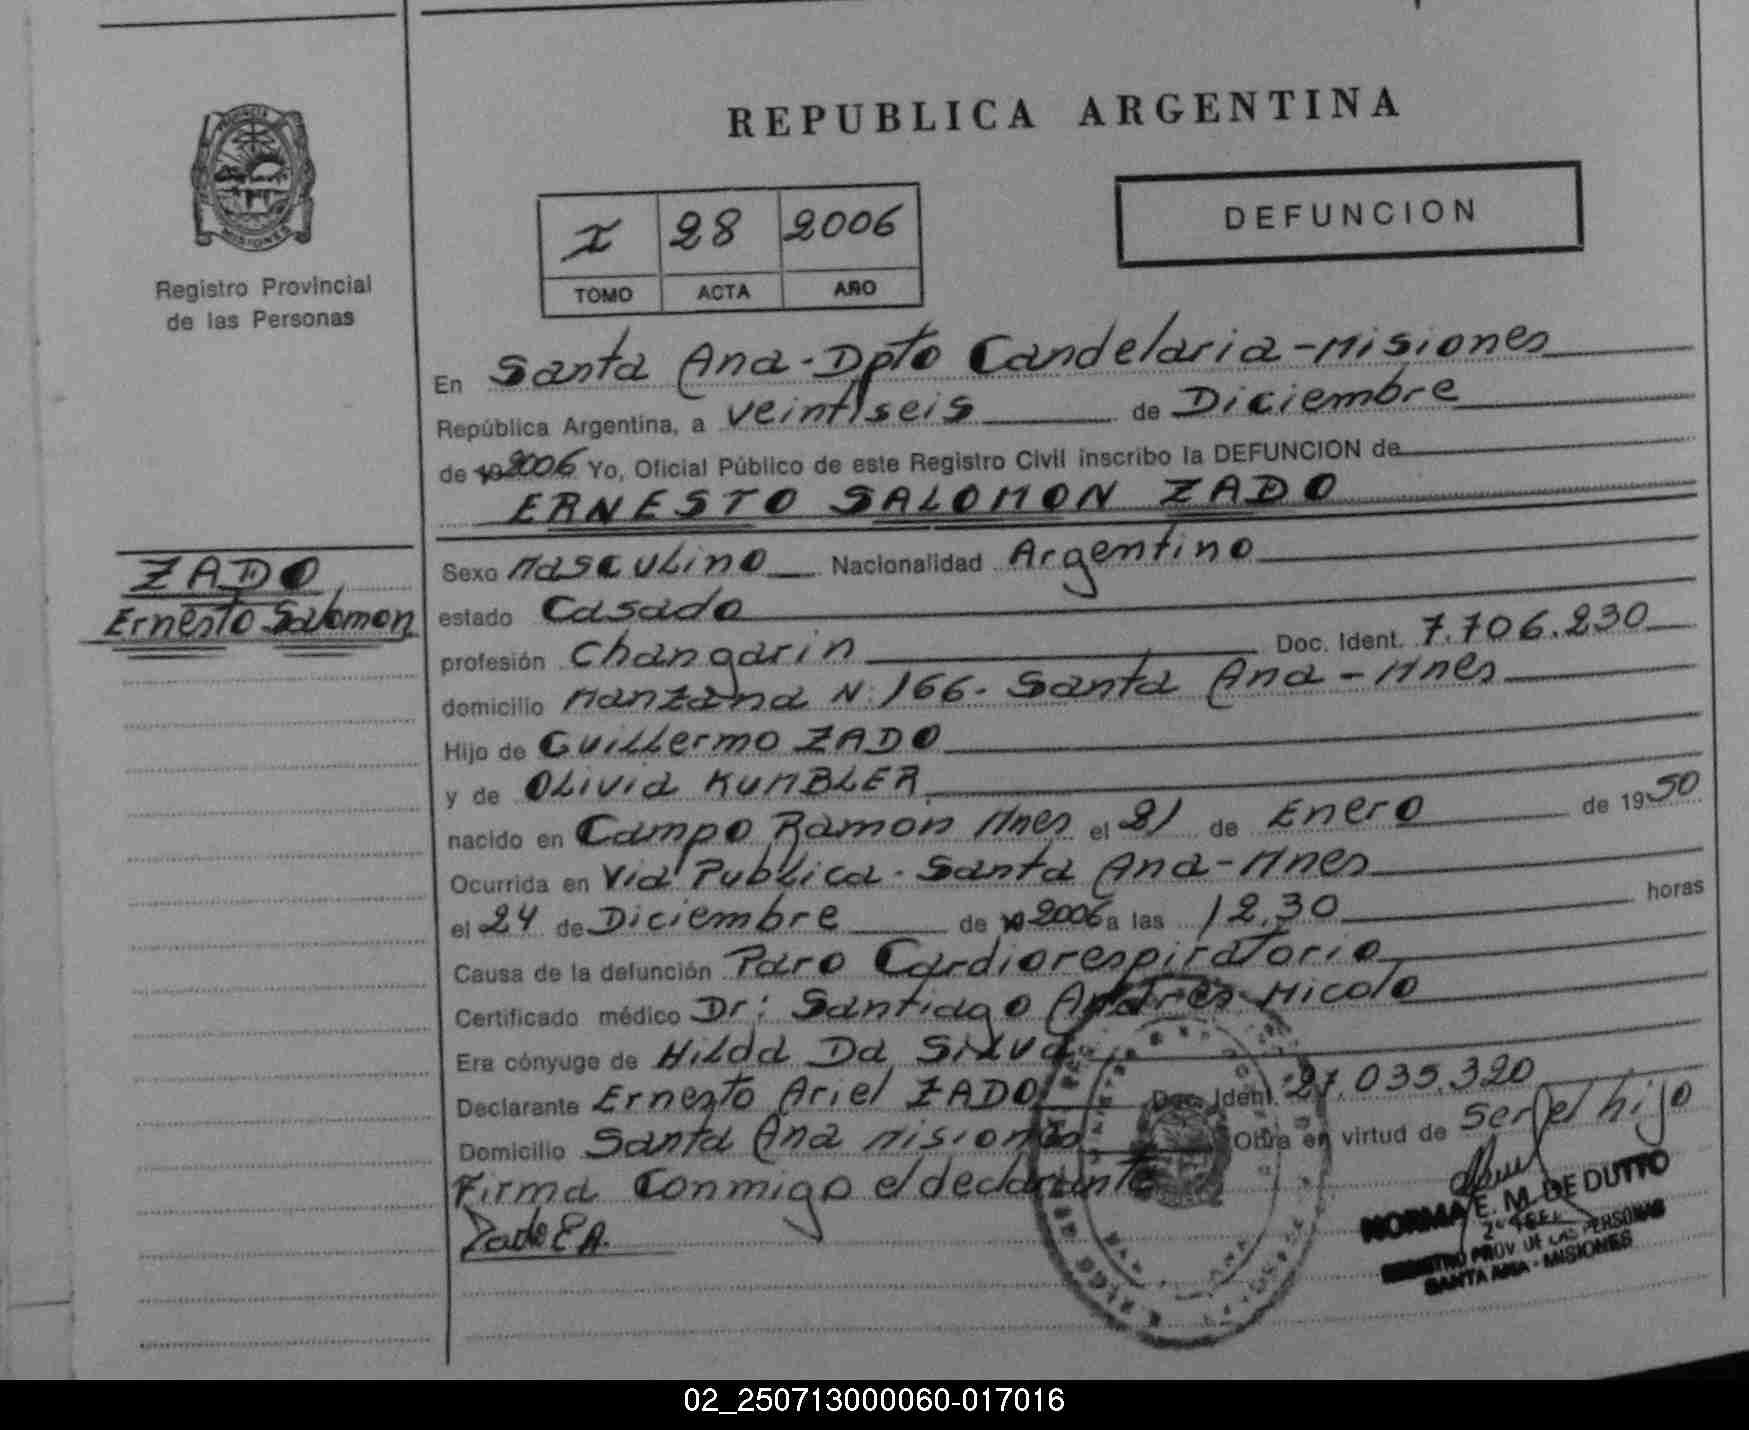 REPUBLICA ARGENTINA
PROVINCIA
MISIONES
Registro Provincial
de las Personas
I 28 2006
TOMO ACTA AÑO
DEFUNCION
En Santa Ana - Dpto Candelaria - Misiones
República Argentina, a veintiseis de Diciembre
de 19 2006 Yo, Oficial Público de este Registro Civil inscribo la DEFUNCION de
ERNESTO SALOMON ZADO
ZADO
Ernesto Salomon
Sexo Masculino Nacionalidad Argentino
estado Casado
profesión Changarin Doc. Ident. 7.706.230
domicilio Manzana N: 166 - Santa Ana - Mnes
Hijo de Guillermo ZADO
y de Olivia KUMBLER
nacido en Campo Ramon Mnes el 21 de Enero de 1950
Ocurrida en Via Publica - Santa Ana - Mnes
el 24 de Diciembre de 19 2006 a las 12,30 horas
Causa de la defunción Paro Cardiorespiratorio
Certificado médico Dr: Santiago Andres Micolo
Era cónyuge de Hilda Da Silva
Declarante Ernesto Ariel ZADO Doc. Ident. 27.035.320
Domicilio Santa Ana Misiones Obra en virtud de ser el hijo
Firma Conmigo el declarante
Zado E A.
NORMA E. M. DE DUTTO
REGISTRO PROV. DE LAS PERSONAS
SANTA ANA - MISIONES
02_250713000060-017016